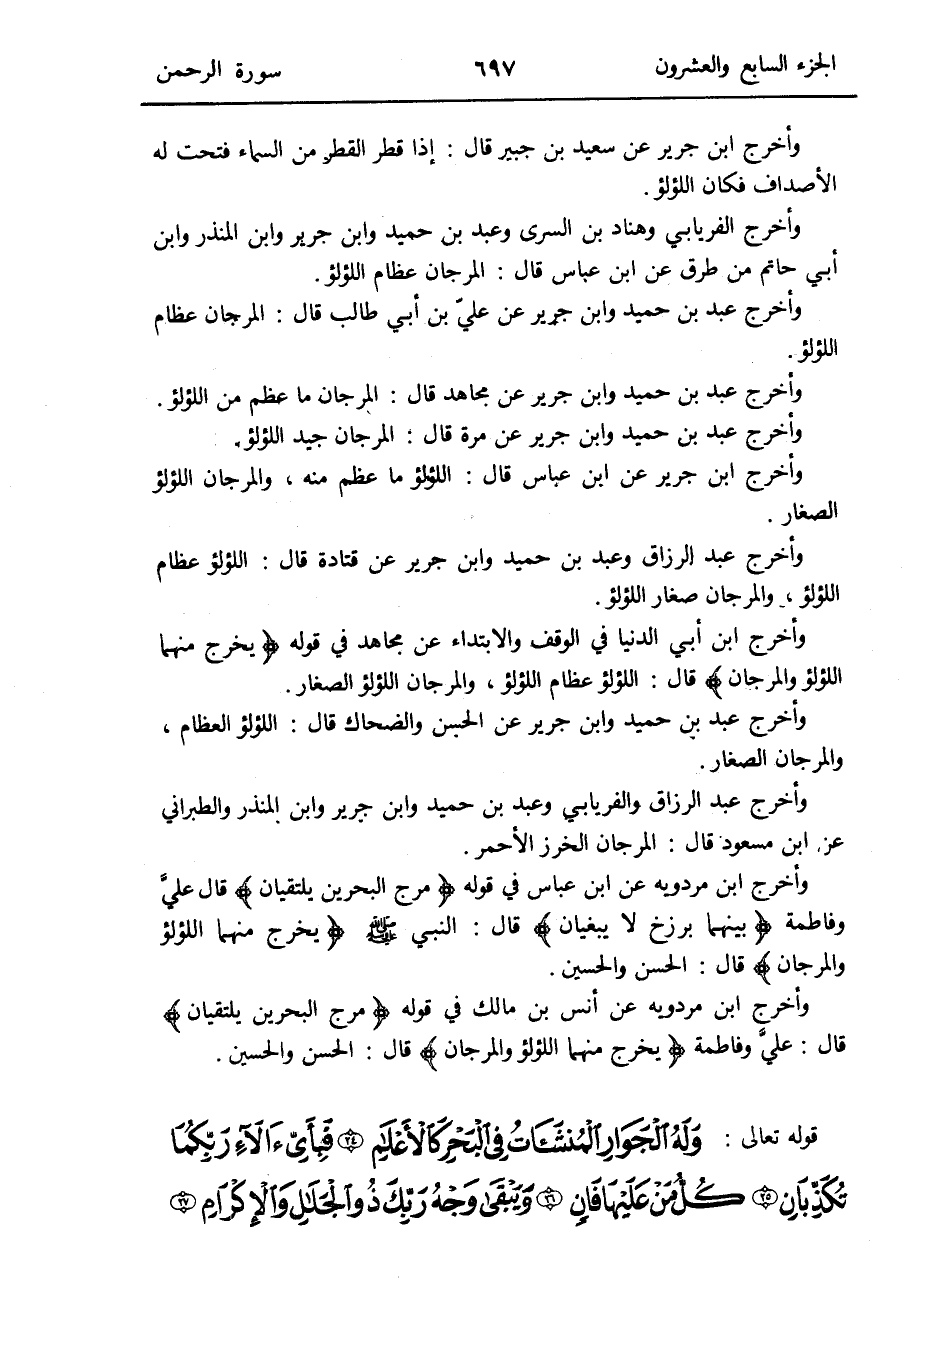 الجزء السابع والعشرون ٦٩٧ سورة الرحمن
وأخرج ابن جرير عن سعيد بن جبير قال : إذا قطر القطر من السماء فتحت له
الأصداف فكان اللؤلؤ .
وأخرج الفريابي وهناد بن السرى وعبد بن حميد وابن جرير وابن المنذر وابن
أبي حاتم من طرق عن ابن عباس قال : المرجان عظام اللؤلؤ .
وأخرج عبد بن حميد وابن جرير عن عليّ بن أبي طالب قال : المرجان عظام
اللؤلؤ .
وأخرج عبد بن حميد وابن جرير عن مجاهد قال : المرجان ما عظم من اللؤلؤ .
وأخرج عبد بن حميد وابن جرير عن مرة قال : المرجان جيد اللؤلؤ .
وأخرج ابن جرير عن ابن عباس قال : اللؤلؤ ما عظم منه ، والمرجان اللؤلؤ
الصغار .
وأخرج عبد الرزاق وعبد بن حميد وابن جرير عن قتادة قال : اللؤلؤ عظام
اللؤلؤ ، والمرجان صغار اللؤلؤ .
وأخرج ابن أبي الدنيا في الوقف والابتداء عن مجاهد في قوله ﴿ يخرج منهما
اللؤلؤ والمرجان ﴾ قال : اللؤلؤ عظام اللؤلؤ ، والمرجان اللؤلؤ الصغار .
وأخرج عبد بن حميد وابن جرير عن الحسن والضحاك قال : اللؤلؤ العظام ،
والمرجان الصغار .
وأخرج عبد الرزاق والفريابي وعبد بن حميد وابن جرير وابن المنذر والطبراني
عن ابن مسعود قال : المرجان الخرز الأحمر .
وأخرج ابن مردويه عن ابن عباس في قوله ﴿ مرج البحرين يلتقيان ﴾ قال عليَّ
وفاطمة ﴿ بينهما برزخ لا يبغيان ﴾ قال : النبي ﷺ ﴿ يخرج منهما اللؤلؤ
والمرجان ﴾ قال : الحسن والحسين .
وأخرج ابن مردويه عن أنس بن مالك في قوله ﴿ مرج البحرين يلتقيان ﴾
قال : عليَّ وفاطمة ﴿ يخرج منهما اللؤلؤ والمرجان ﴾ قال : الحسن والحسين .
قوله تعالى : وَلَهُ ٱلْجَوَارِ ٱلْمُنشَـَٔاتُ فِى ٱلْبَحْرِ كَٱلْأَعْلَٰمِ ﴿٢٤﴾ فَبِأَىِّ ءَالَآءِ رَبِّكُمَا
تُكَذِّبَانِ ﴿٢٥﴾ كُلُّ مَنْ عَلَيْهَا فَانٍ ﴿٢٦﴾ وَيَبْقَىٰ وَجْهُ رَبِّكَ ذُو ٱلْجَلَٰلِ وَٱلْإِكْرَامِ ﴿٢٧﴾